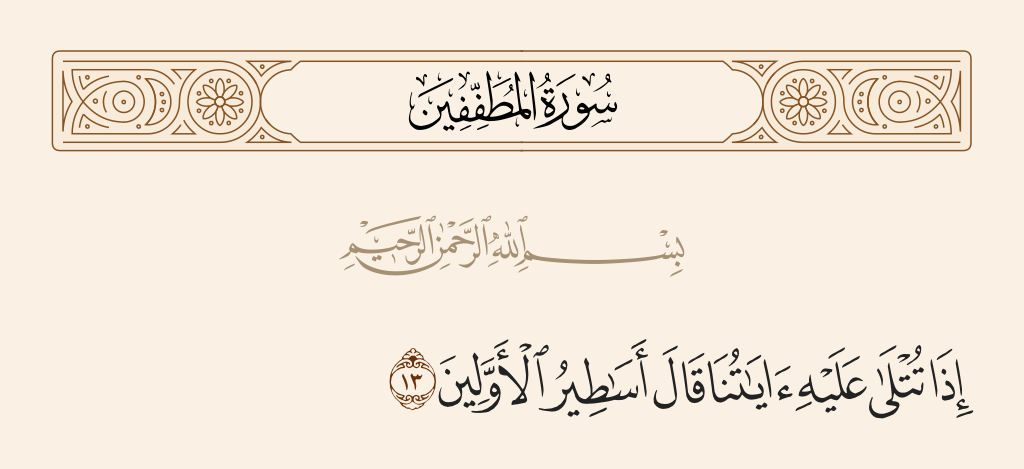 سُورَةُ المُطَفِّفِينَ
بِسْمِ ٱللَّهِ ٱلرَّحْمَٰنِ ٱلرَّحِيمِ
إِذَا تُتْلَىٰ عَلَيْهِ ءَايَٰتُنَا قَالَ أَسَٰطِيرُ ٱلْأَوَّلِينَ ١٣